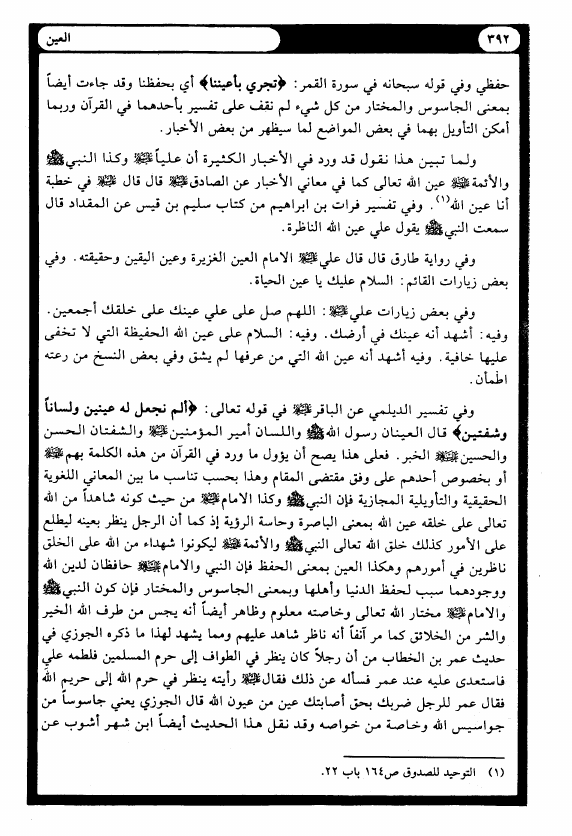 ٣٩٢
العين
حفظي وفي قوله سبحانه في سورة القمر: ﴿تجري بأعيننا﴾ أي بحفظنا وقد جاءت أيضاً
بمعنى الجاسوس والمختار من كل شيء لم نقف على تفسير بأحدهما في القرآن وربما
أمكن التأويل بهما في بعض المواضع لما سيظهر من بعض الأخبار.
ولما تبين هذا نقول قد ورد في الأخبار الكثيرة أن علياً وكذا النبي ﷺ
والأئمة عين الله تعالى كما في معاني الأخبار عن الصادق قال قال في خطبة
أنا عين الله(١). وفي تفسير فرات بن ابراهيم من كتاب سليم بن قيس عن المقداد قال
سمعت النبي ﷺ يقول علي عين الله الناظرة.
وفي رواية طارق قال قال علي الامام العين الغزيرة وعين اليقين وحقيقته. وفي
بعض زيارات القائم: السلام عليك يا عين الحياة.
وفي بعض زيارات علي : اللهم صل على علي عينك على خلقك أجمعين.
وفيه: أشهد أنه عينك في أرضك. وفيه: السلام على عين الله الحفيظة التي لا تخفى
عليها خافية. وفيه أشهد أنه عين الله التي من عرفها لم يشق وفي بعض النسخ من رعته
اطمأن.
وفي تفسير الديلمي عن الباقر في قوله تعالى: ﴿ألم نجعل له عينين ولساناً
وشفتين﴾ قال العينان رسول الله ﷺ واللسان أمير المؤمنين والشفتان الحسن
والحسين الخبر. فعلى هذا يصح أن يؤول ما ورد في القرآن من هذه الكلمة بهم
أو بخصوص أحدهم على وفق مقتضى المقام وهذا بحسب تناسب ما بين المعاني اللغوية
الحقيقية والتأويلية المجازية فإن النبي ﷺ وكذا الامام من حيث كونه شاهداً من الله
تعالى على خلقه عين الله بمعنى الباصرة وحاسة الرؤية إذ كما أن الرجل ينظر بعينه ليطلع
على الأمور كذلك خلق الله تعالى النبي ﷺ والأئمة ليكونوا شهداء من الله على الخلق
ناظرين في أمورهم وهكذا العين بمعنى الحفظ فإن النبي والامام حافظان لدين الله
ووجودهما سبب لحفظ الدنيا وأهلها وبمعنى الجاسوس والمختار فإن كون النبي ﷺ
والامام مختار الله تعالى وخاصته معلوم وظاهر أيضاً أنه يجس من طرف الله الخير
والشر من الخلائق كما مر آنفاً أنه ناظر شاهد عليهم ومما يشهد لهذا ما ذكره الجوزي في
حديث عمر بن الخطاب من أن رجلاً كان ينظر في الطواف إلى حرم المسلمين فلطمه علي
فاستعدى عليه عند عمر فسأله عن ذلك فقال رأيته ينظر في حرم الله إلى حريم الله
فقال عمر للرجل ضربك بحق أصابتك عين من عيون الله قال الجوزي يعني جاسوساً من
جواسيس الله وخاصة من خواصه وقد نقل هذا الحديث أيضاً ابن شهر أشوب عن
(١) التوحيد للصدوق ص١٦٤ باب ٢٢.